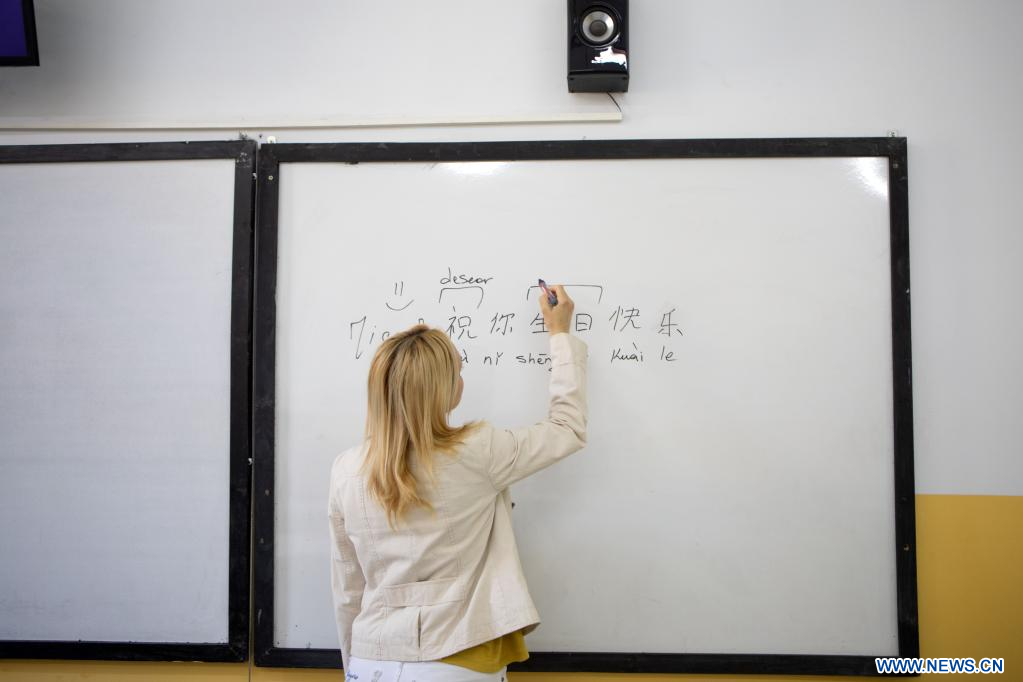 desear
祝你生日快乐
nǐ shēng kuài le
WWW.NEWS.CN